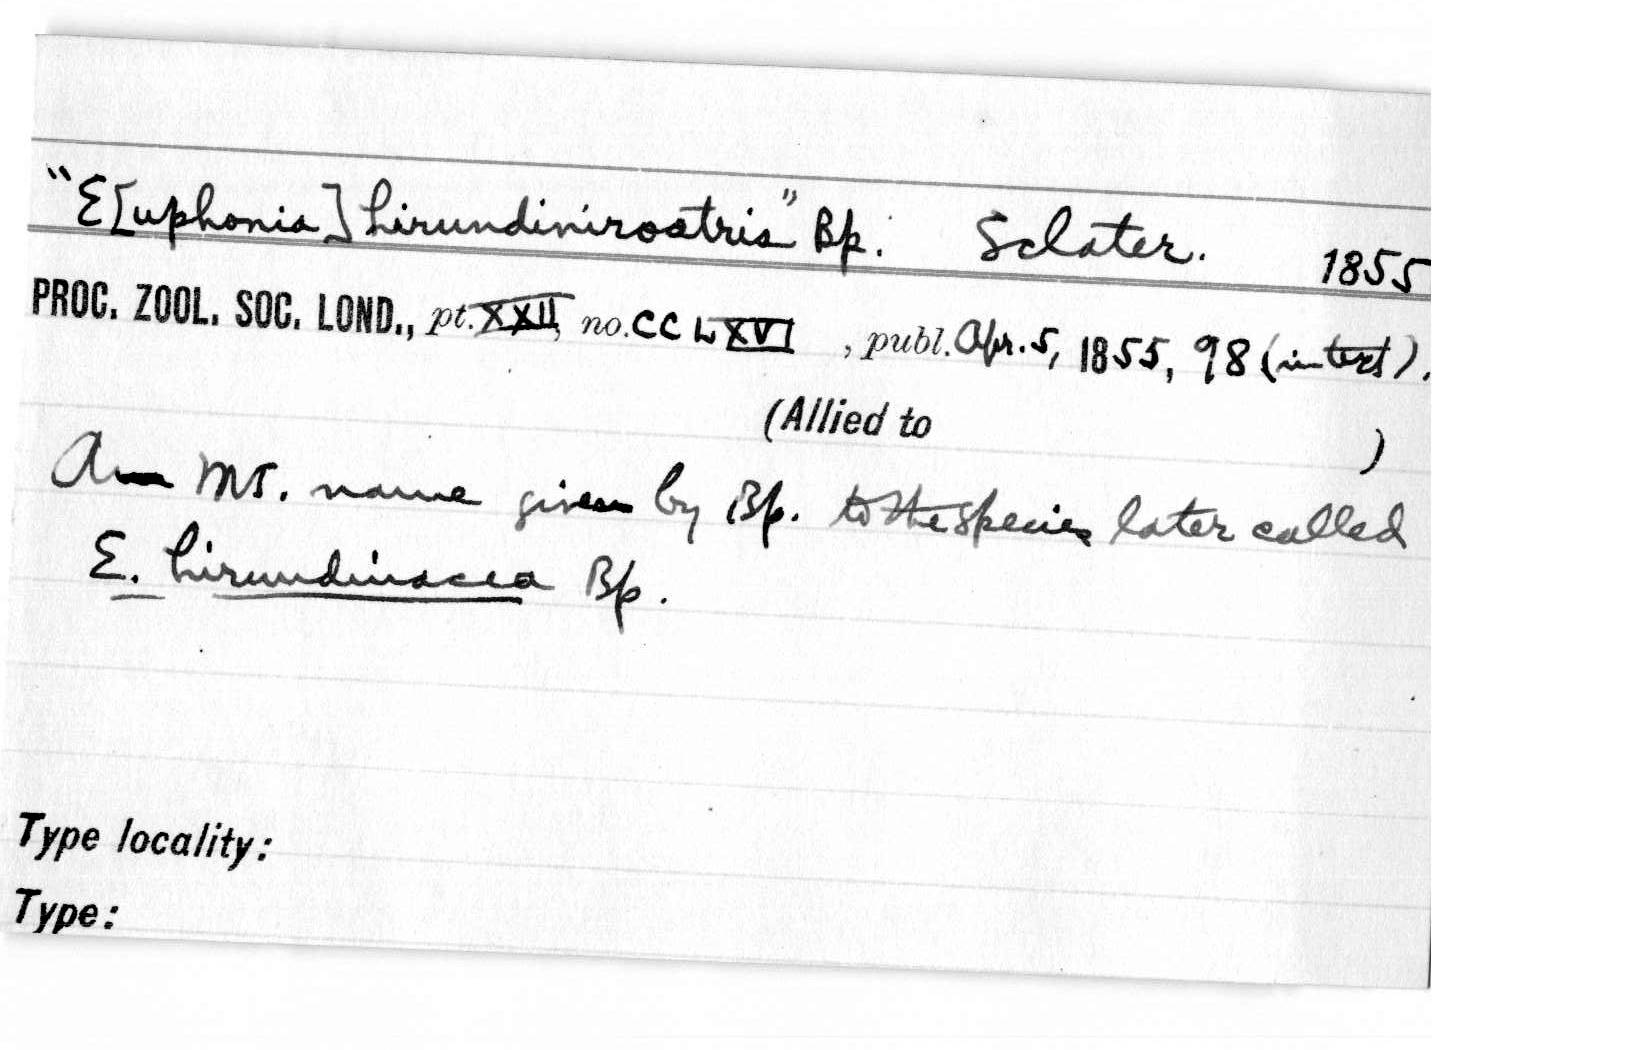 "E[uphonia] hirundinirostris" Bp. Sclater. 1855
PROC. ZOOL. SOC. LOND., pt. XXII, no. CCLXVI, publ. Apr. 5, 1855, 98 (in text).
(Allied to )
A MS. name given by Bp. to the species later called
E. hirundinacea Bp.
Type locality:
Type: